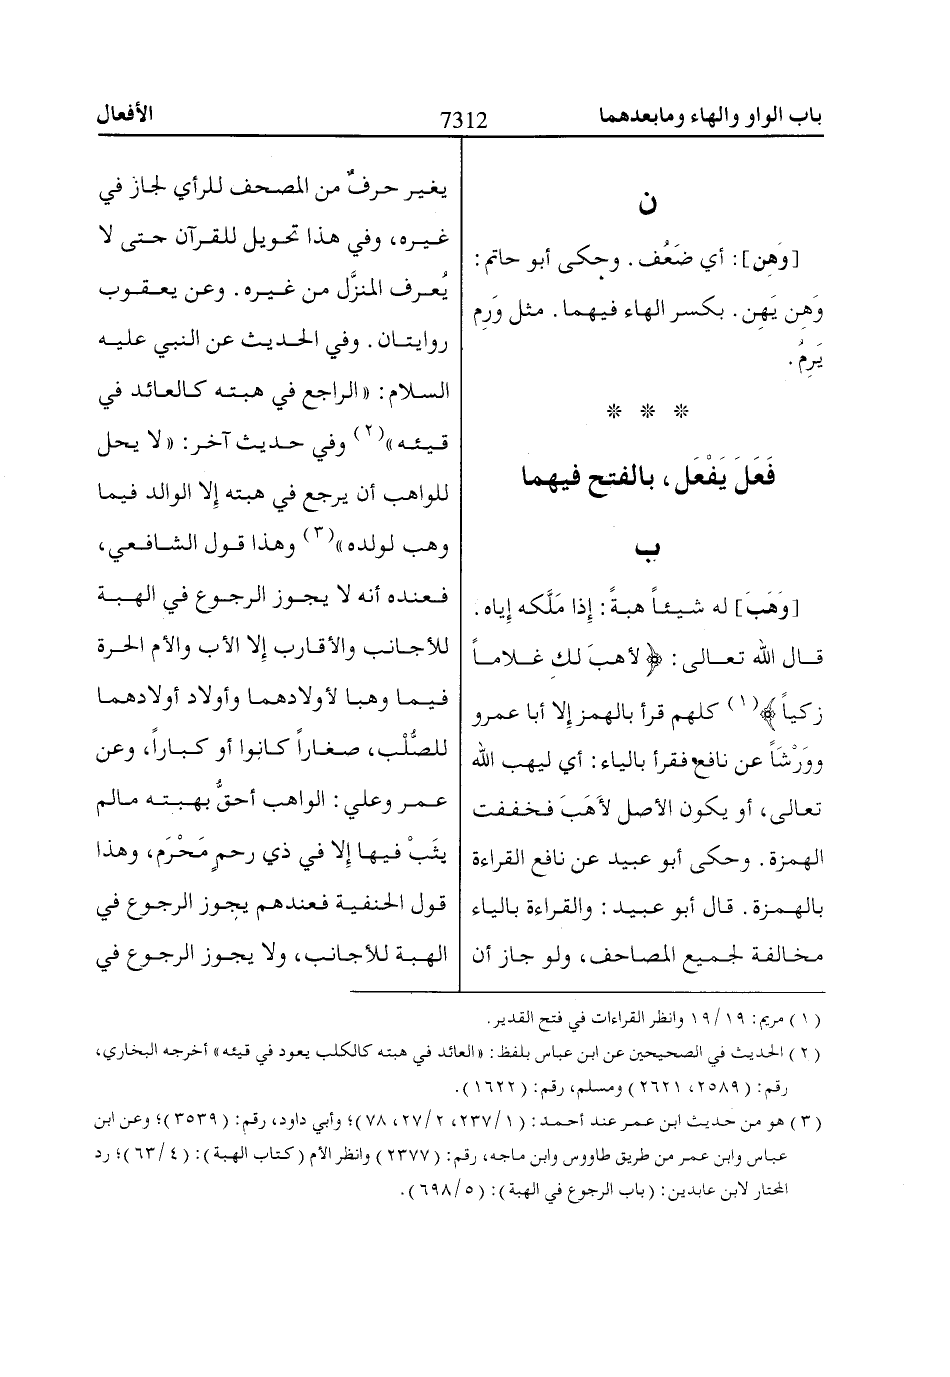 باب الواو والهاء ومابعدهما
7312
الأفعال
ن
[وَهَن]: أي ضَعُف. وحكى أبو حاتم:
وَهِن يَهِن. بكسر الهاء فيهما. مثل وَرِم
يَرِمُ.
* * *
فَعَلَ يَفْعَل، بالفتح فيهما
ب
[وَهَبَ] له شيئاً هبةً: إذا مَلَّكه إياه.
قال الله تعالى: ﴿لأهبَ لك غلاماً
زكياً﴾(١) كلهم قرأ بالهمز إلا أبا عمرو
ووَرْشاً عن نافع فقرأ بالياء: أي ليهب الله
تعالى، أو يكون الأصل لأَهَبَ فخففت
الهمزة. وحكى أبو عبيد عن نافع القراءة
بالهمزة. قال أبو عبيد: والقراءة بالياء
مخالفة لجميع المصاحف، ولو جاز أن
يغير حرفٌ من المصحف للرأي لجاز في
غيره، وفي هذا تحويل للقرآن حتى لا
يُعرف المنزَّل من غيره. وعن يعقوب
روايتان. وفي الحديث عن النبي عليه
السلام: «الراجع في هبته كالعائد في
قيئه»(٢) وفي حديث آخر: «لا يحل
للواهب أن يرجع في هبته إلا الوالد فيما
وهب لولده»(٣) وهذا قول الشافعي،
فعنده أنه لا يجوز الرجوع في الهبة
للأجانب والأقارب إلا الأب والأم الحرة
فيما وهبا لأولادهما وأولاد أولادهما
للصُّلْب، صغاراً كانوا أو كباراً، وعن
عمر وعلي: الواهب أحقُّ بهبته مالم
يثَبْ فيها إلا في ذي رحمٍ مَحْرَم، وهذا
قول الحنفية فعندهم يجوز الرجوع في
الهبة للأجانب، ولا يجوز الرجوع في
(١) مريم: ١٩/١٩ وانظر القراءات في فتح القدير.
(٢) الحديث في الصحيحين عن ابن عباس بلفظ: «العائد في هبته كالكلب يعود في قيئه» أخرجه البخاري،
رقم: (٢٥٨٩، ٢٦٢١) ومسلم، رقم: (١٦٢٢).
(٣) هو من حديث ابن عمر عند أحمد: (١/٢٣٧، ٢/٢٧، ٧٨)؛ وأبي داود، رقم: (٣٥٣٩)؛ وعن ابن
عباس وابن عمر من طريق طاووس وابن ماجه، رقم: (٢٣٧٧) وانظر الأم (كتاب الهبة): (٤/٦٣)؛ رد
المحتار لابن عابدين: (باب الرجوع في الهبة): (٥/٦٩٨).